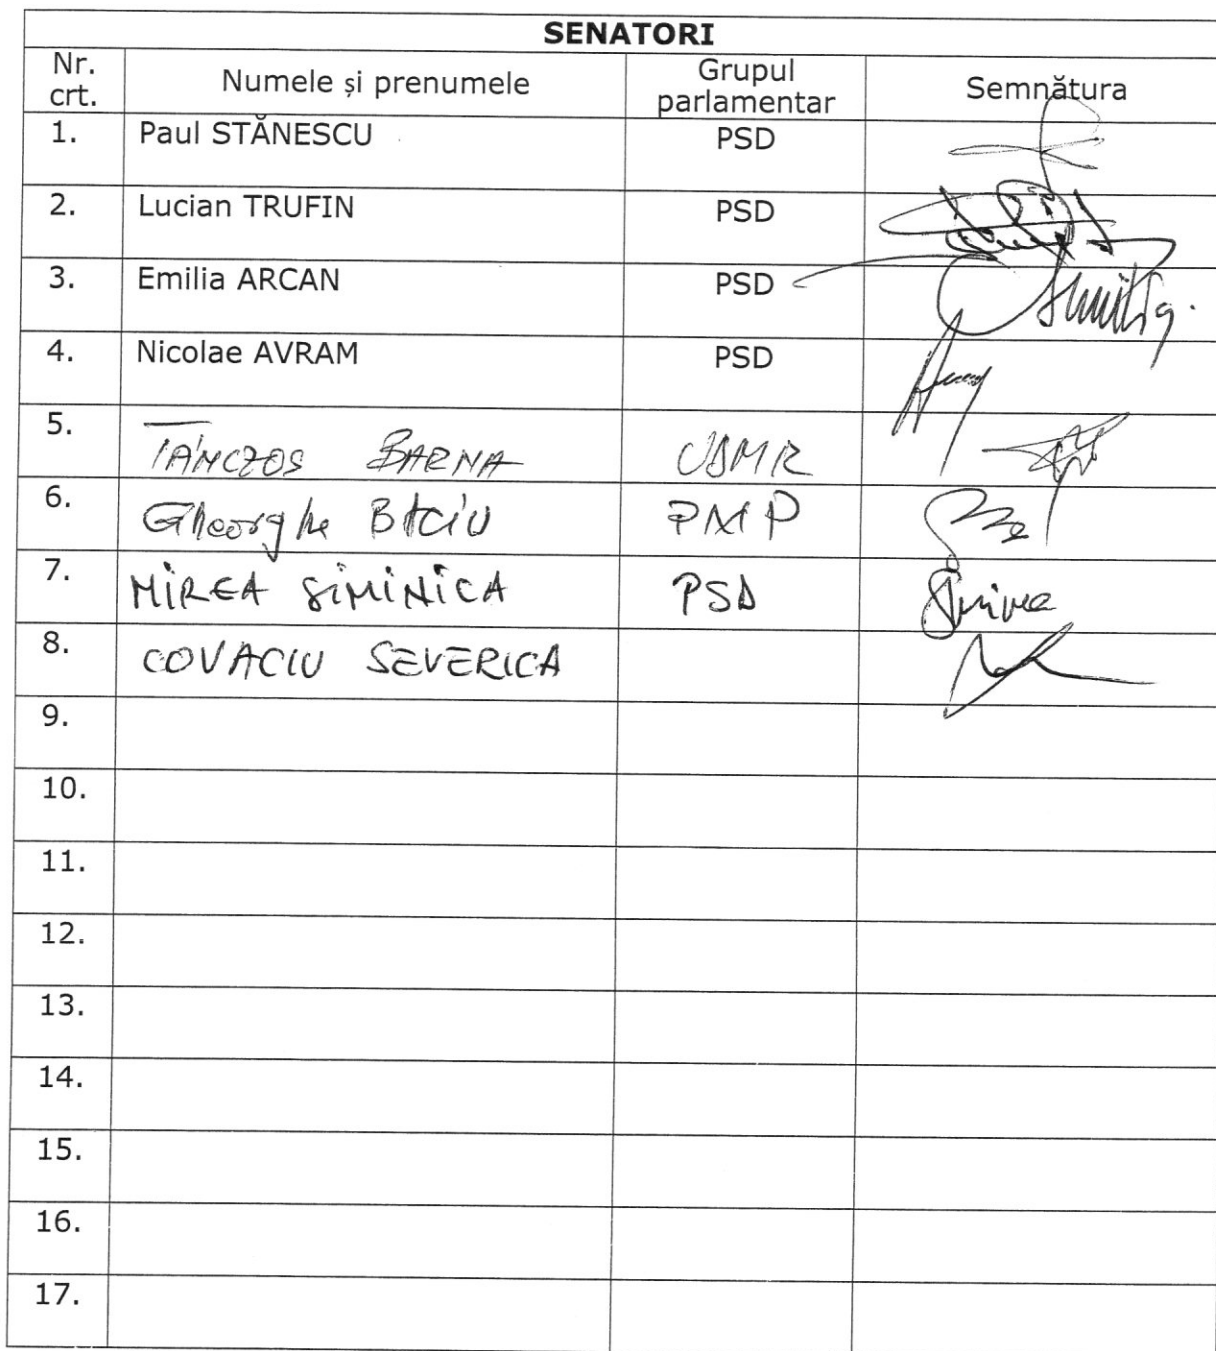 SENATORI
Nr. crt. Numele și prenumele Grupul parlamentar Semnătura
1. Paul STĂNESCU PSD
2. Lucian TRUFIN PSD
3. Emilia ARCAN PSD
4. Nicolae AVRAM PSD
5. TÁNCZOS BARNA UDMR
6. Gheorghe BACIU PMP
7. MIREA SIMINICA PSD
8. COVACIU SEVERICA
9.
10.
11.
12.
13.
14.
15.
16.
17.